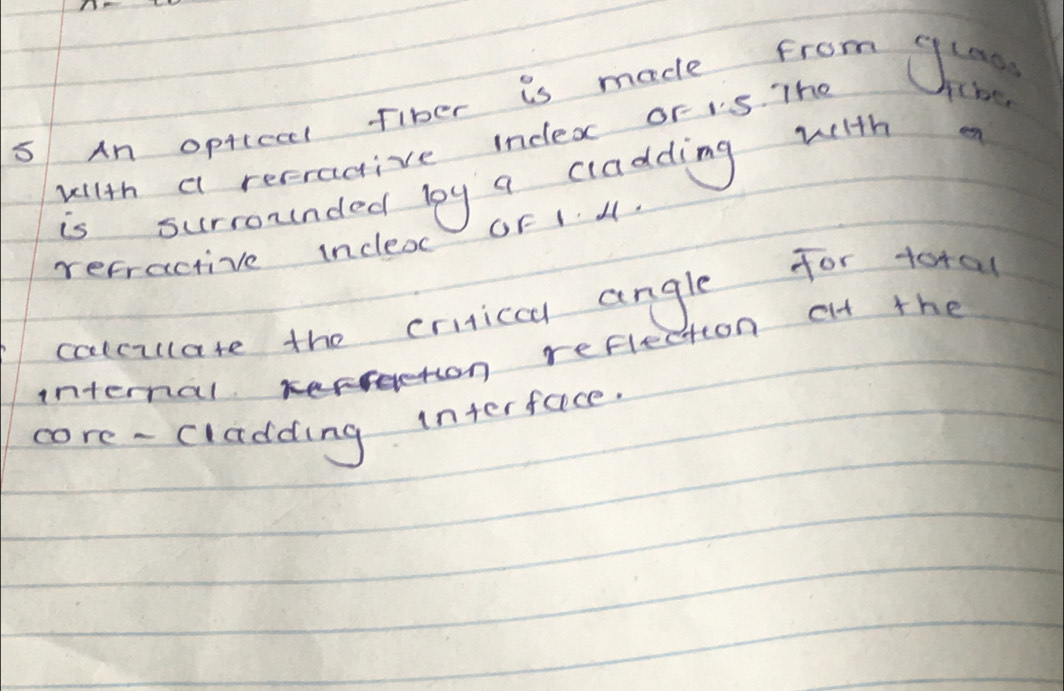 5 An optical Fiber is made From glass
with a refractive index of 1.5. The Fiber
is surrounded by a cladding with a
refractive index of 1.4.
calculate the critical angle For total
internal reflection at the
core - cladding interface.